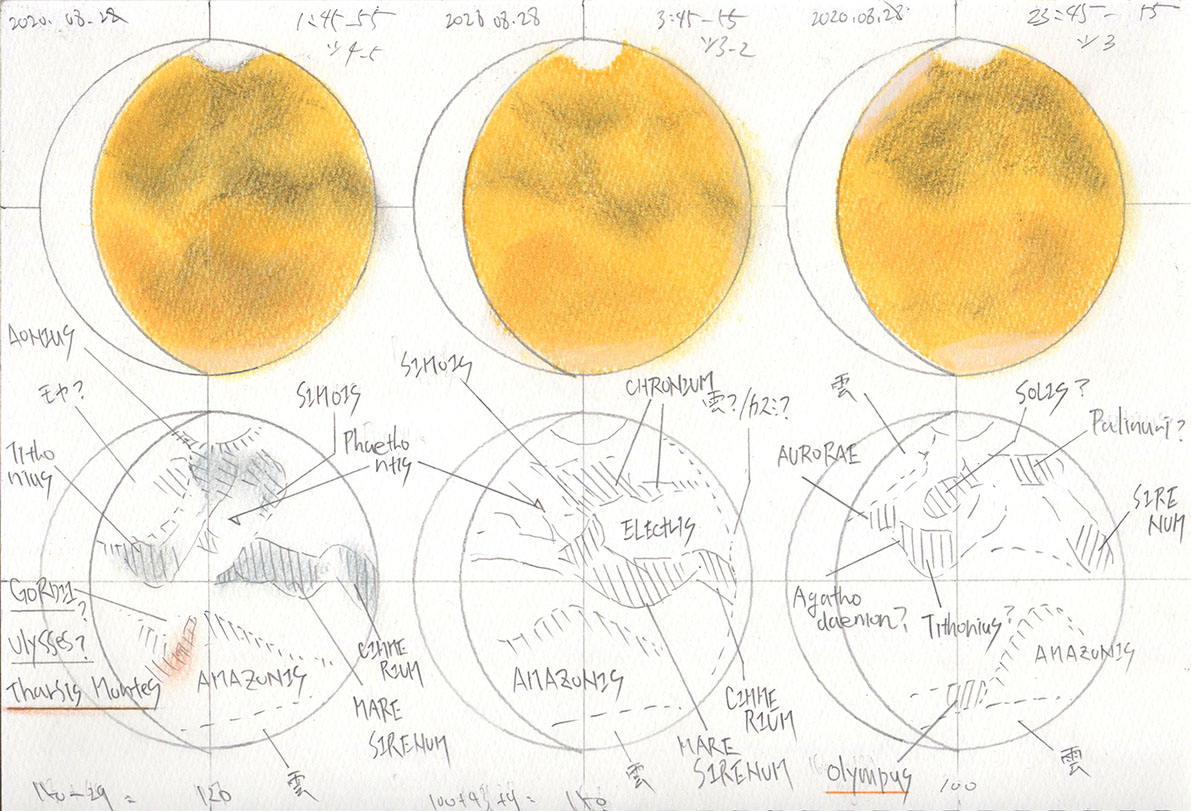 2020.08.28
1:45-55
ツ4-5
2020.08.28
3:45-55
ツ3-2
2020.08.28
23:45- 55
ツ3
AONIUS
モヤ?
Titho
nius
SIMOIS
Phaetho
ntis
GORDII
?
Ulysses?
Tharsis Montes
AMAZONIS
CIMME
RIUM
MARE
SIRENUM
雲
SIMOIS
CHRONIUM
ELECTRIS
AMAZONIS
CIMME
RIUM
MARE
SIRENUM
雲
雲
SOLIS?
Palinuri?
AURORAE
SIRE
NUM
Agatho
daemon?
Tithonius?
AMAZONIS
Olympus
雲
100